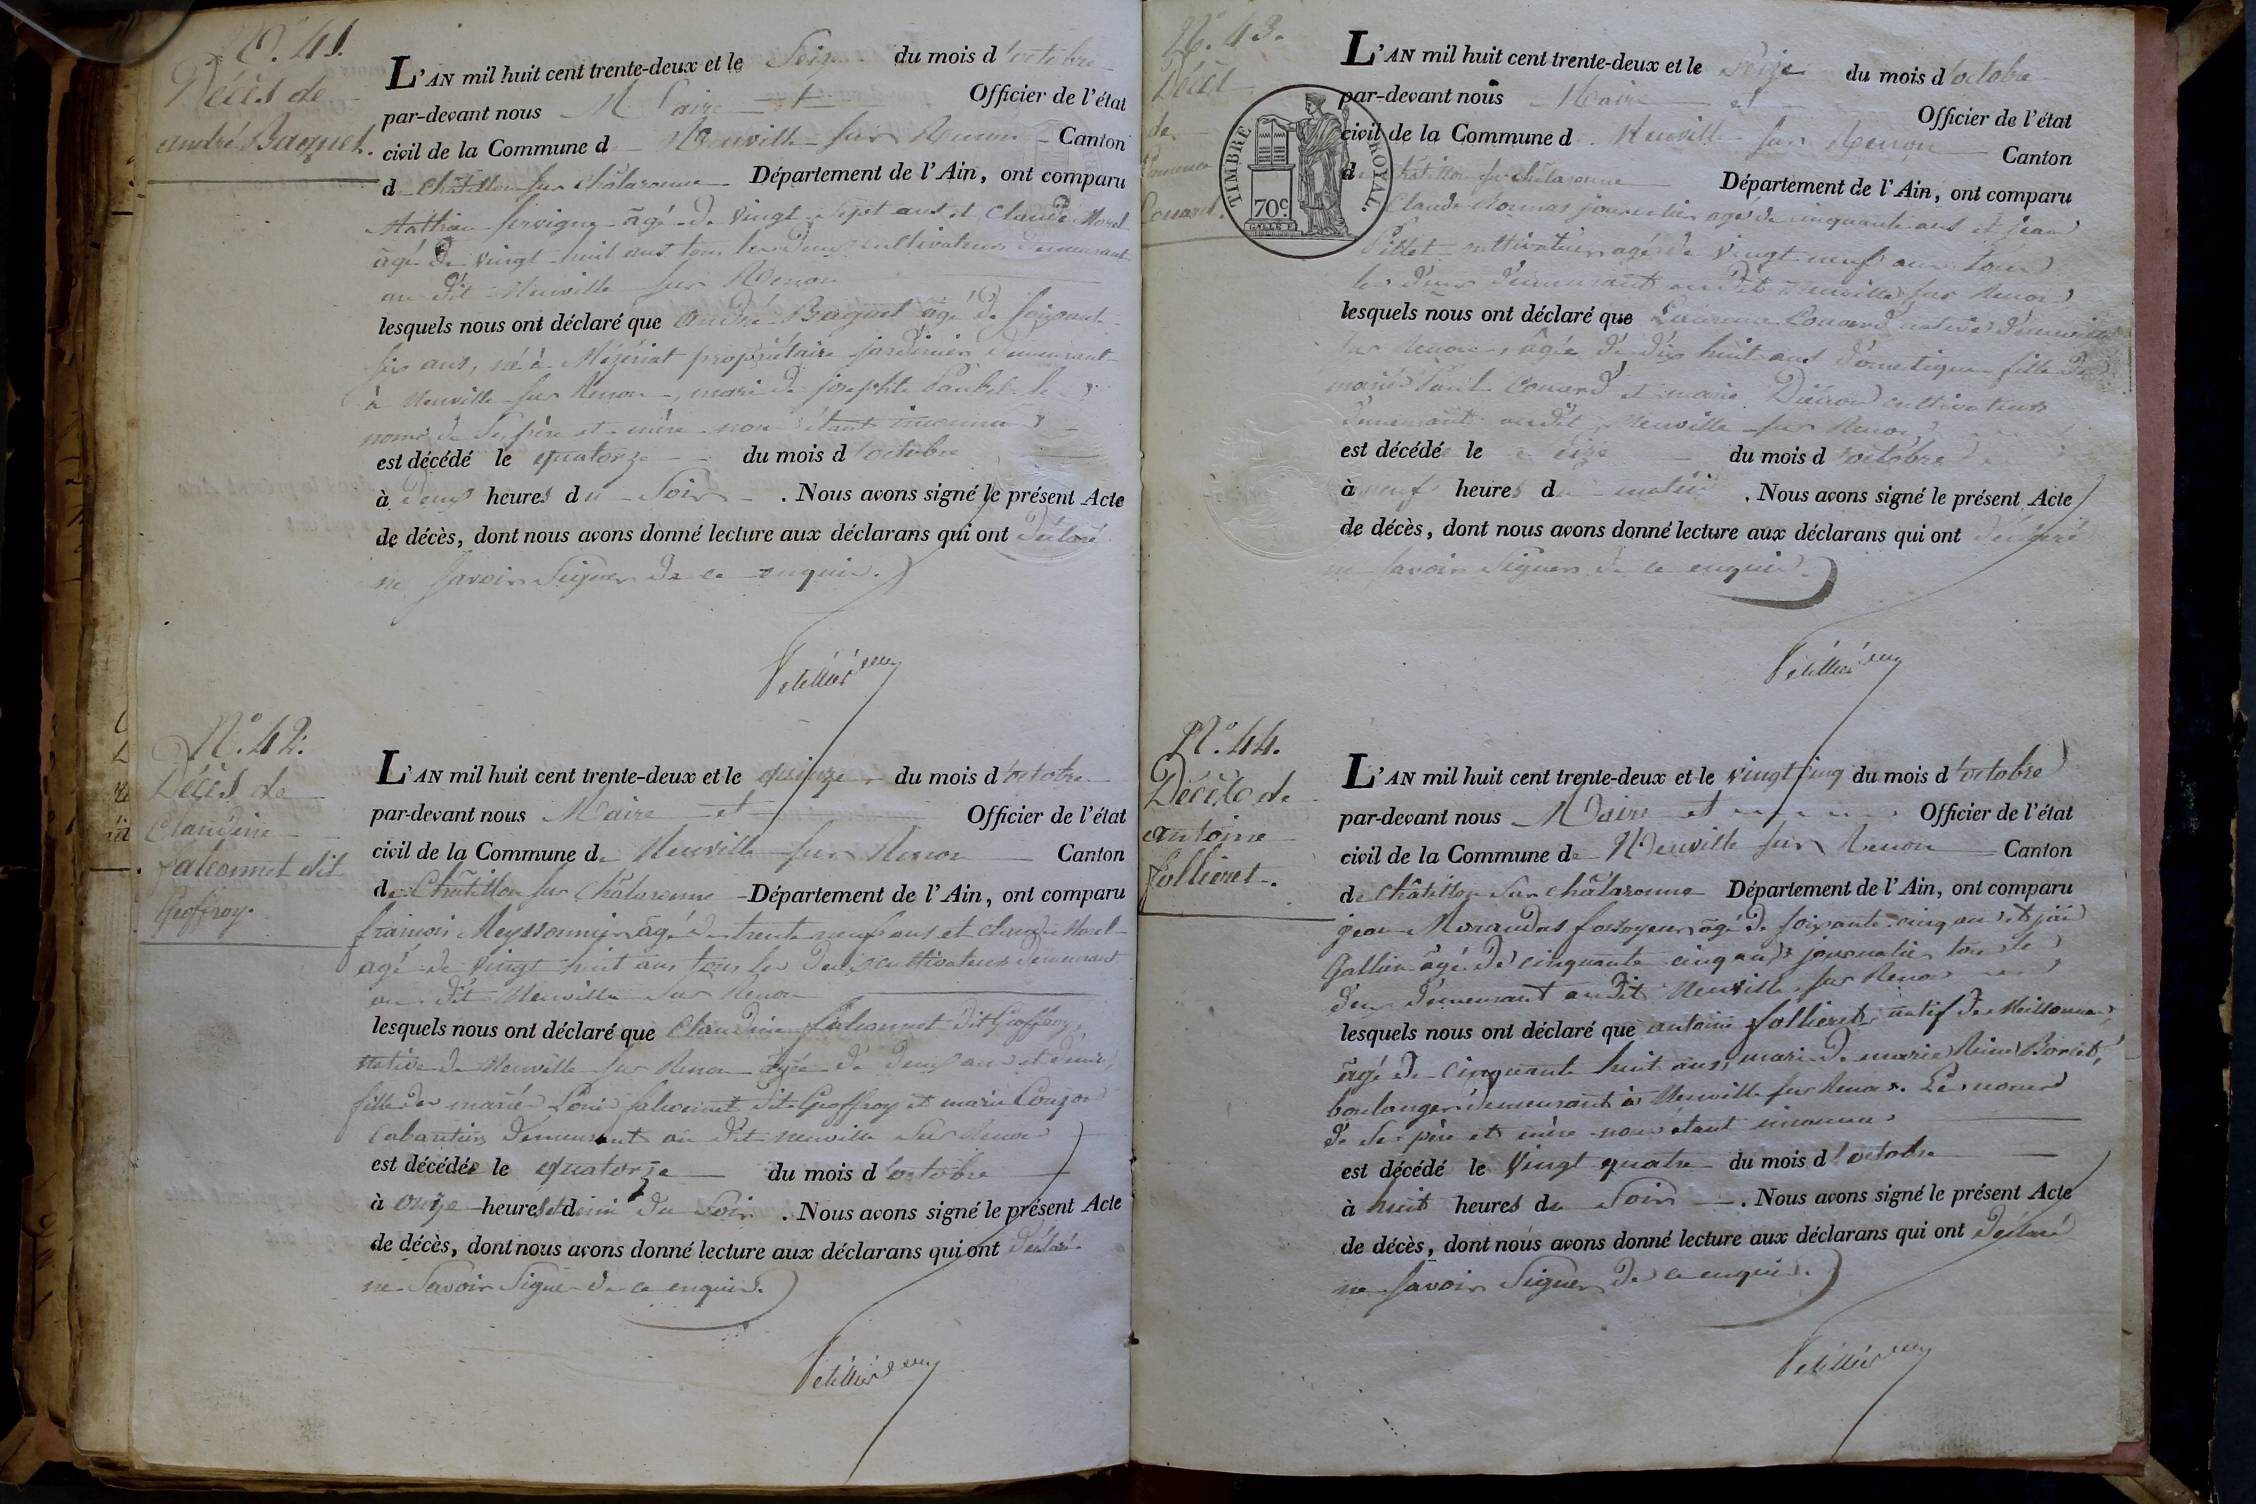 N.° 41.
Décès de
andré Baquet.
L'AN mil huit cent trente-deux et le du mois d'octobre
par-devant nous Maire et Officier de l'état
civil de la Commune d Neuville sur Renon Canton
d châtillon sur châlaronne Département de l'Ain, ont comparu
Mathieu âgé de vingt sept ans et Claude Morel
âgé de vingt huit ans tous les deux cultivateurs demeurant
au dit Neuville sur Renon
lesquels nous ont déclaré que andré Baquet âgé de soixante
six ans, né à Mézériat propriétaire jardinier demeurant
à Neuville sur Renon, mari de josephte
noms de ses père et mère nous étant inconnu
est décédé le quatorze du mois d'octobre
à deux heures du Soir. Nous avons signé le présent Acte
de décès, dont nous avons donné lecture aux déclarans qui ont déclaré
ne savoir Signer de ce enquis.
N.° 42.
Décès de
Claudine
falconnet dit
Geoffroy.
L'AN mil huit cent trente-deux et le quinze du mois d'octobre
par-devant nous Maire et Officier de l'état
civil de la Commune de Neuville sur Renon Canton
de Châtillon sur Châlaronne Département de l'Ain, ont comparu
françois Meyssonnier âgé de trente neuf ans et claude Morel
agé de vingt huit ans tous les deux cultivateurs demeurant
au dit Neuville sur Renon
lesquels nous ont déclaré que Claudine falconnet dit Geoffroy,
Native de Neuville sur Renon âgée de deux ans et demi,
fille de marié Loui falconnet dit Geoffroy et marie
Cabartier demeurant au dit neuville sur Renon
est décédée le quatorze du mois d'octobre
à onze heures et demi du Soir. Nous avons signé le présent Acte
de décès, dont nous avons donné lecture aux déclarans qui ont déclaré
ne Savoir Signer de ce enquis.
N.° 43.
Décès
de
Couard.
TIMBRE ROYAL.
70c
L'AN mil huit cent trente-deux et le seize du mois d'octobre
par-devant nous Maire et Officier de l'état
civil de la Commune d Neuville sur Renon Canton
de châtillon sur châlaronne Département de l'Ain, ont comparu
Claude journalier agé de cinquante ans et jean
cultivateur agé de vingt neuf ans tous
les deux demeurant au dit neuville sur Renon
lesquels nous ont déclaré que Couard native de neuville
sur Renon, âgée de dix huit ans domestique fille de
marié Couard et marie cultivateurs
demeurant audit Neuville sur Renon
est décédée le seize du mois d'octobre
à neuf heures du matin. Nous avons signé le présent Acte
de décès, dont nous avons donné lecture aux déclarans qui ont déclaré
ne savoir Signer de ce enquis.
N.° 44.
Décès de
antoine
follieret.
L'AN mil huit cent trente-deux et le vingt cinq du mois d'octobre
par-devant nous Maire et Officier de l'état
civil de la Commune de Neuville sur Renon Canton
de Châtillon sur châlaronne Département de l'Ain, ont comparu
jean Morandas fossoyeur âgé de soixante cinq ans et
Gallien âgé de cinquante cinq ans journalier tous le
deux demeurant audit Neuville sur Renon
lesquels nous ont déclaré que antoine follieret natif de
âgé de cinquante huit ans, mari de marie
boulanger demeurant à Neuville sur Renon. Le nomer
de Ses père et mère nous étant inconnu
est décédé le Vingt quatre du mois d'octobre
à huit heures du Soir. Nous avons signé le présent Acte
de décès, dont nous avons donné lecture aux déclarans qui ont déclaré
ne savoir Signer de ce enquis.